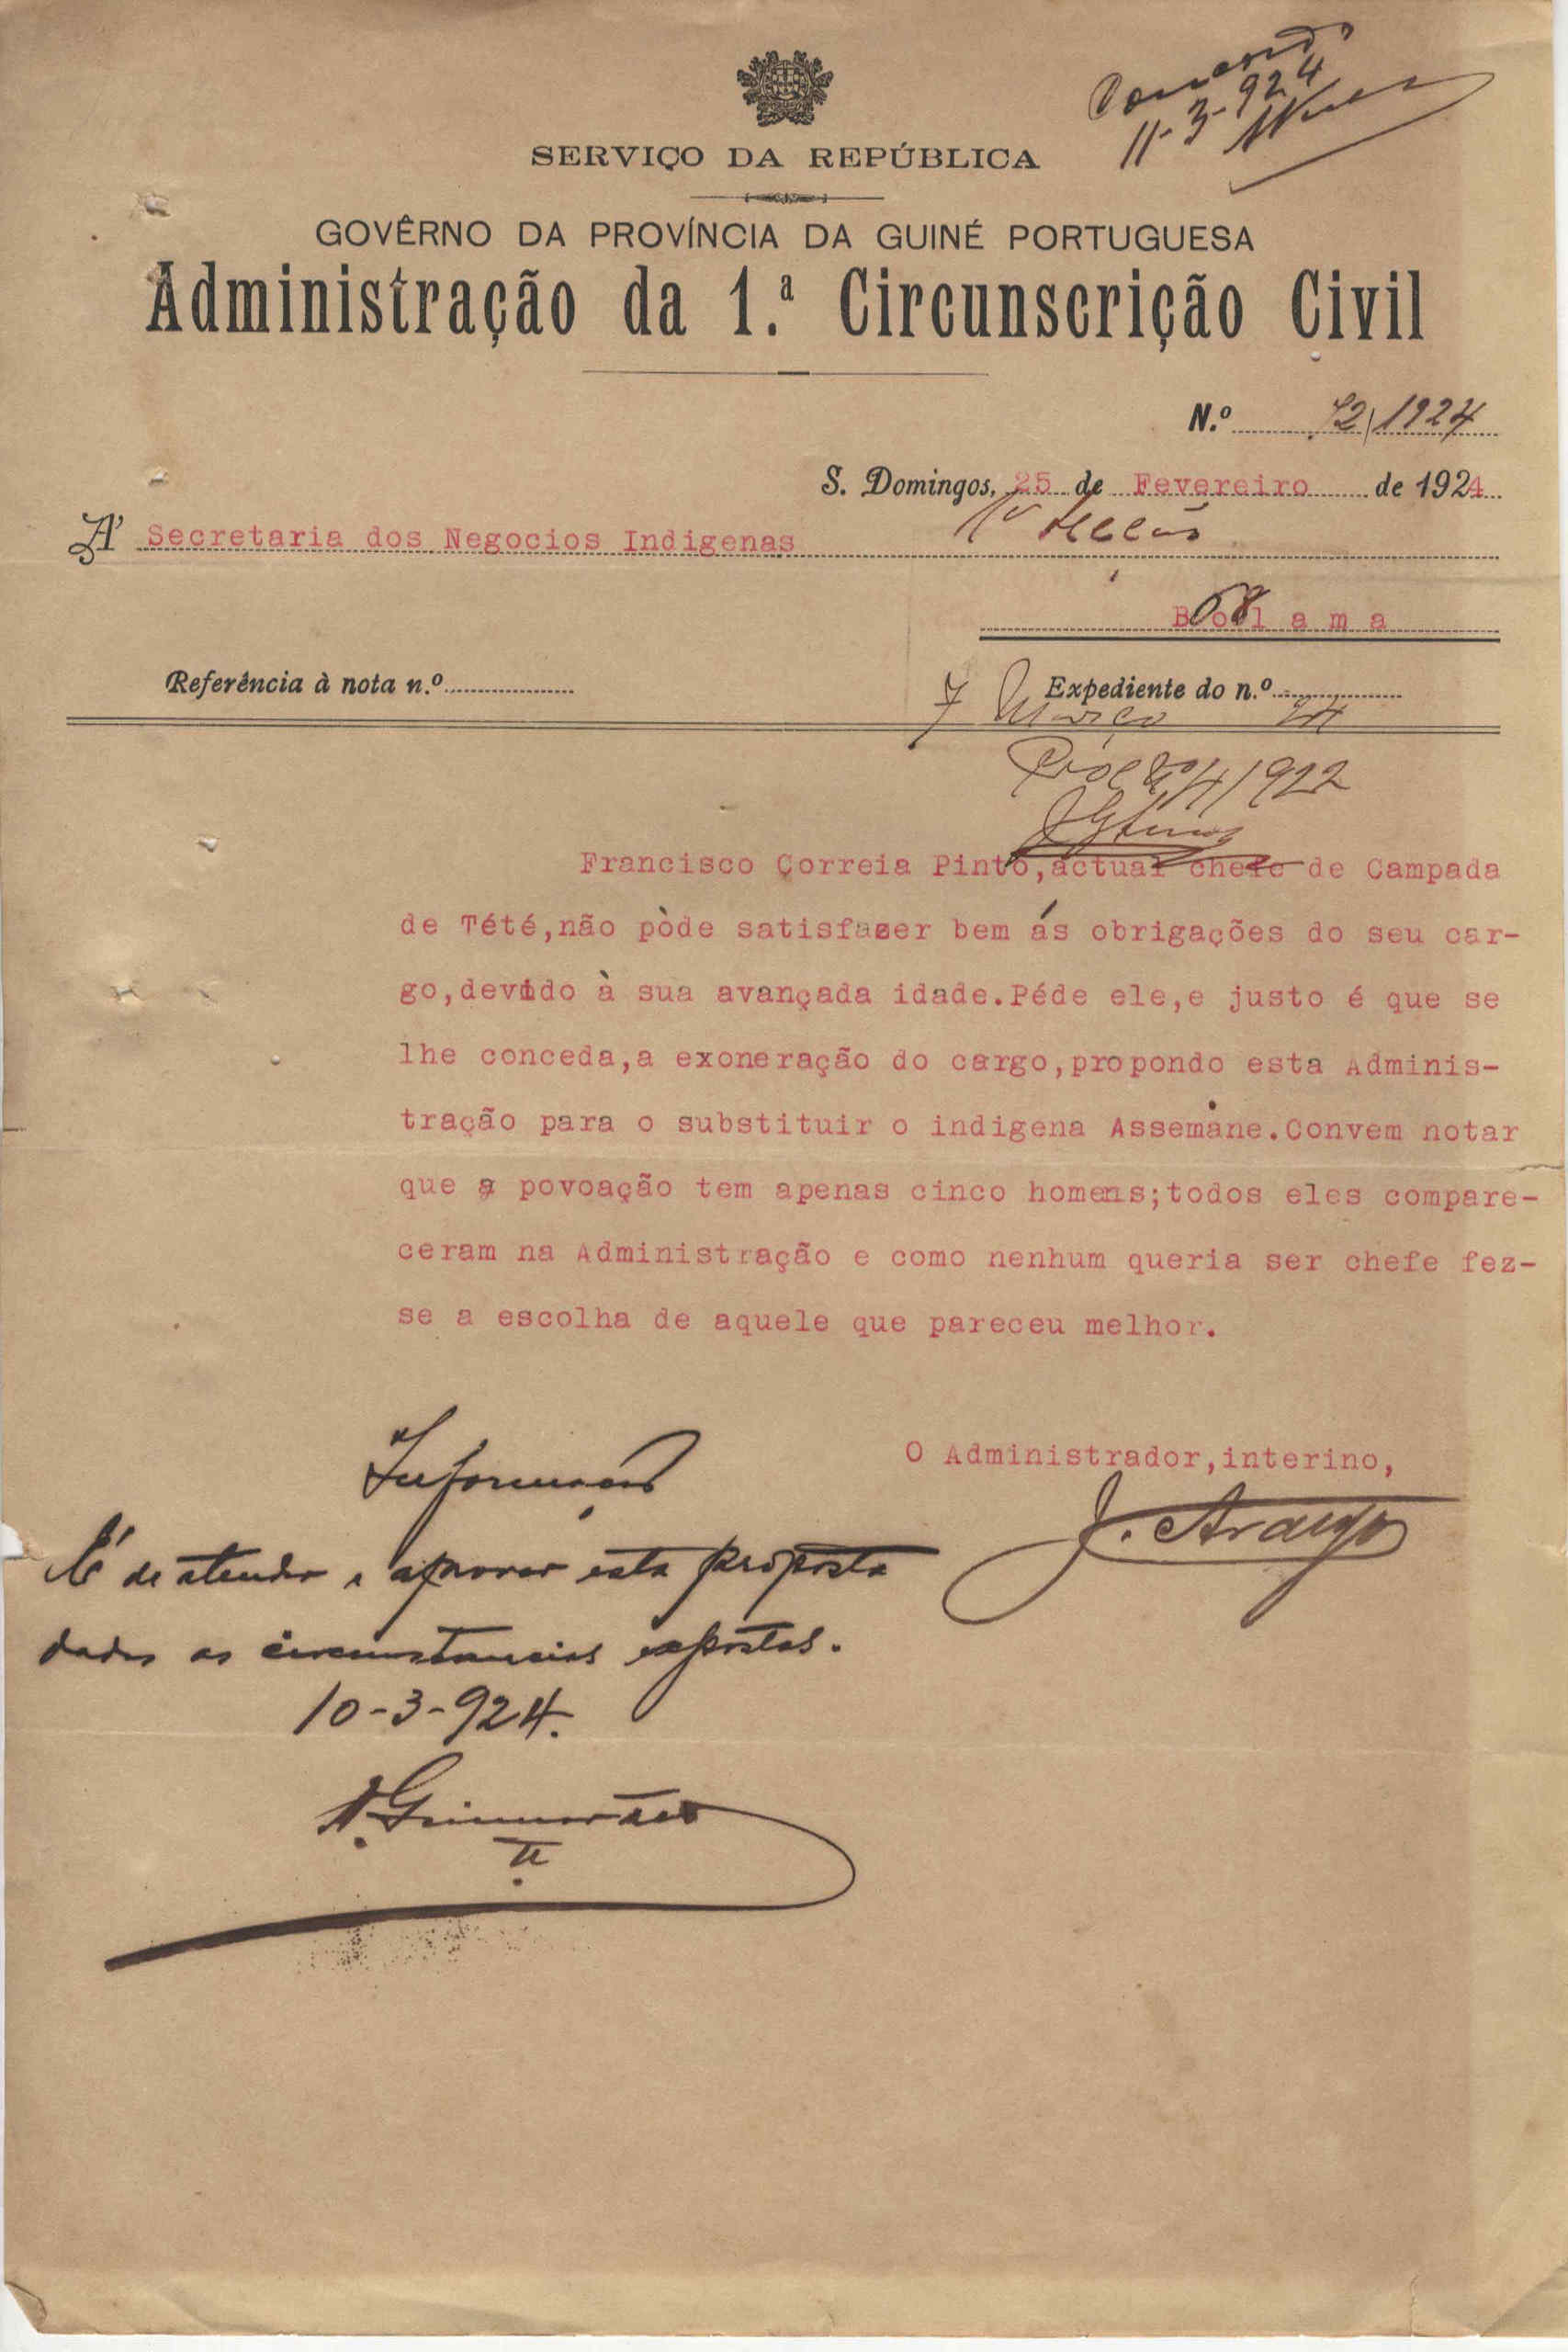 Concordo
11-3-924
SERVIÇO DA REPÚBLICA
GOVÊRNO DA PROVÍNCIA DA GUINÉ PORTUGUESA
Administração da 1.ª Circunscrição Civil
N.º 72/1924
S. Domingos, 25 de Fevereiro de 1924
Á Secretaria dos Negocios Indigenas
68
Bolama
Referência à nota n.º Expediente do n.º
7 Março 24
4/922
Francisco Correia Pinto, actual chefe de Campada
de Tété, não pòde satisfazer bem ás obrigações do seu car-
go, devido à sua avançada idade. Péde ele, e justo é que se
lhe conceda, a exoneração do cargo, propondo esta Adminis-
tração para o substituir o indigena Assemane. Convem notar
que a povoação tem apenas cinco homens; todos eles compare-
ceram na Administração e como nenhum queria ser chefe fez-
se a escolha de aquele que pareceu melhor.
O Administrador, interino,
J. Araujo
Informação
É de atender e aprovar esta proposta
dadas as circumstancias expostas.
10-3-924.
A. Guimarães